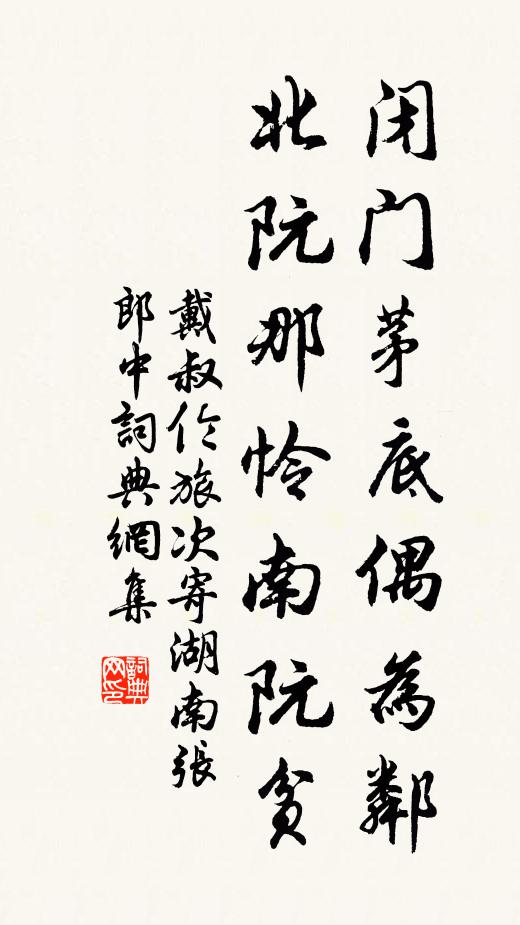 闭门茅底偶為鄰
北阮那怜南阮貧
戴叔伦旅次寄湖南張
郎中詞典網集
詞典网印